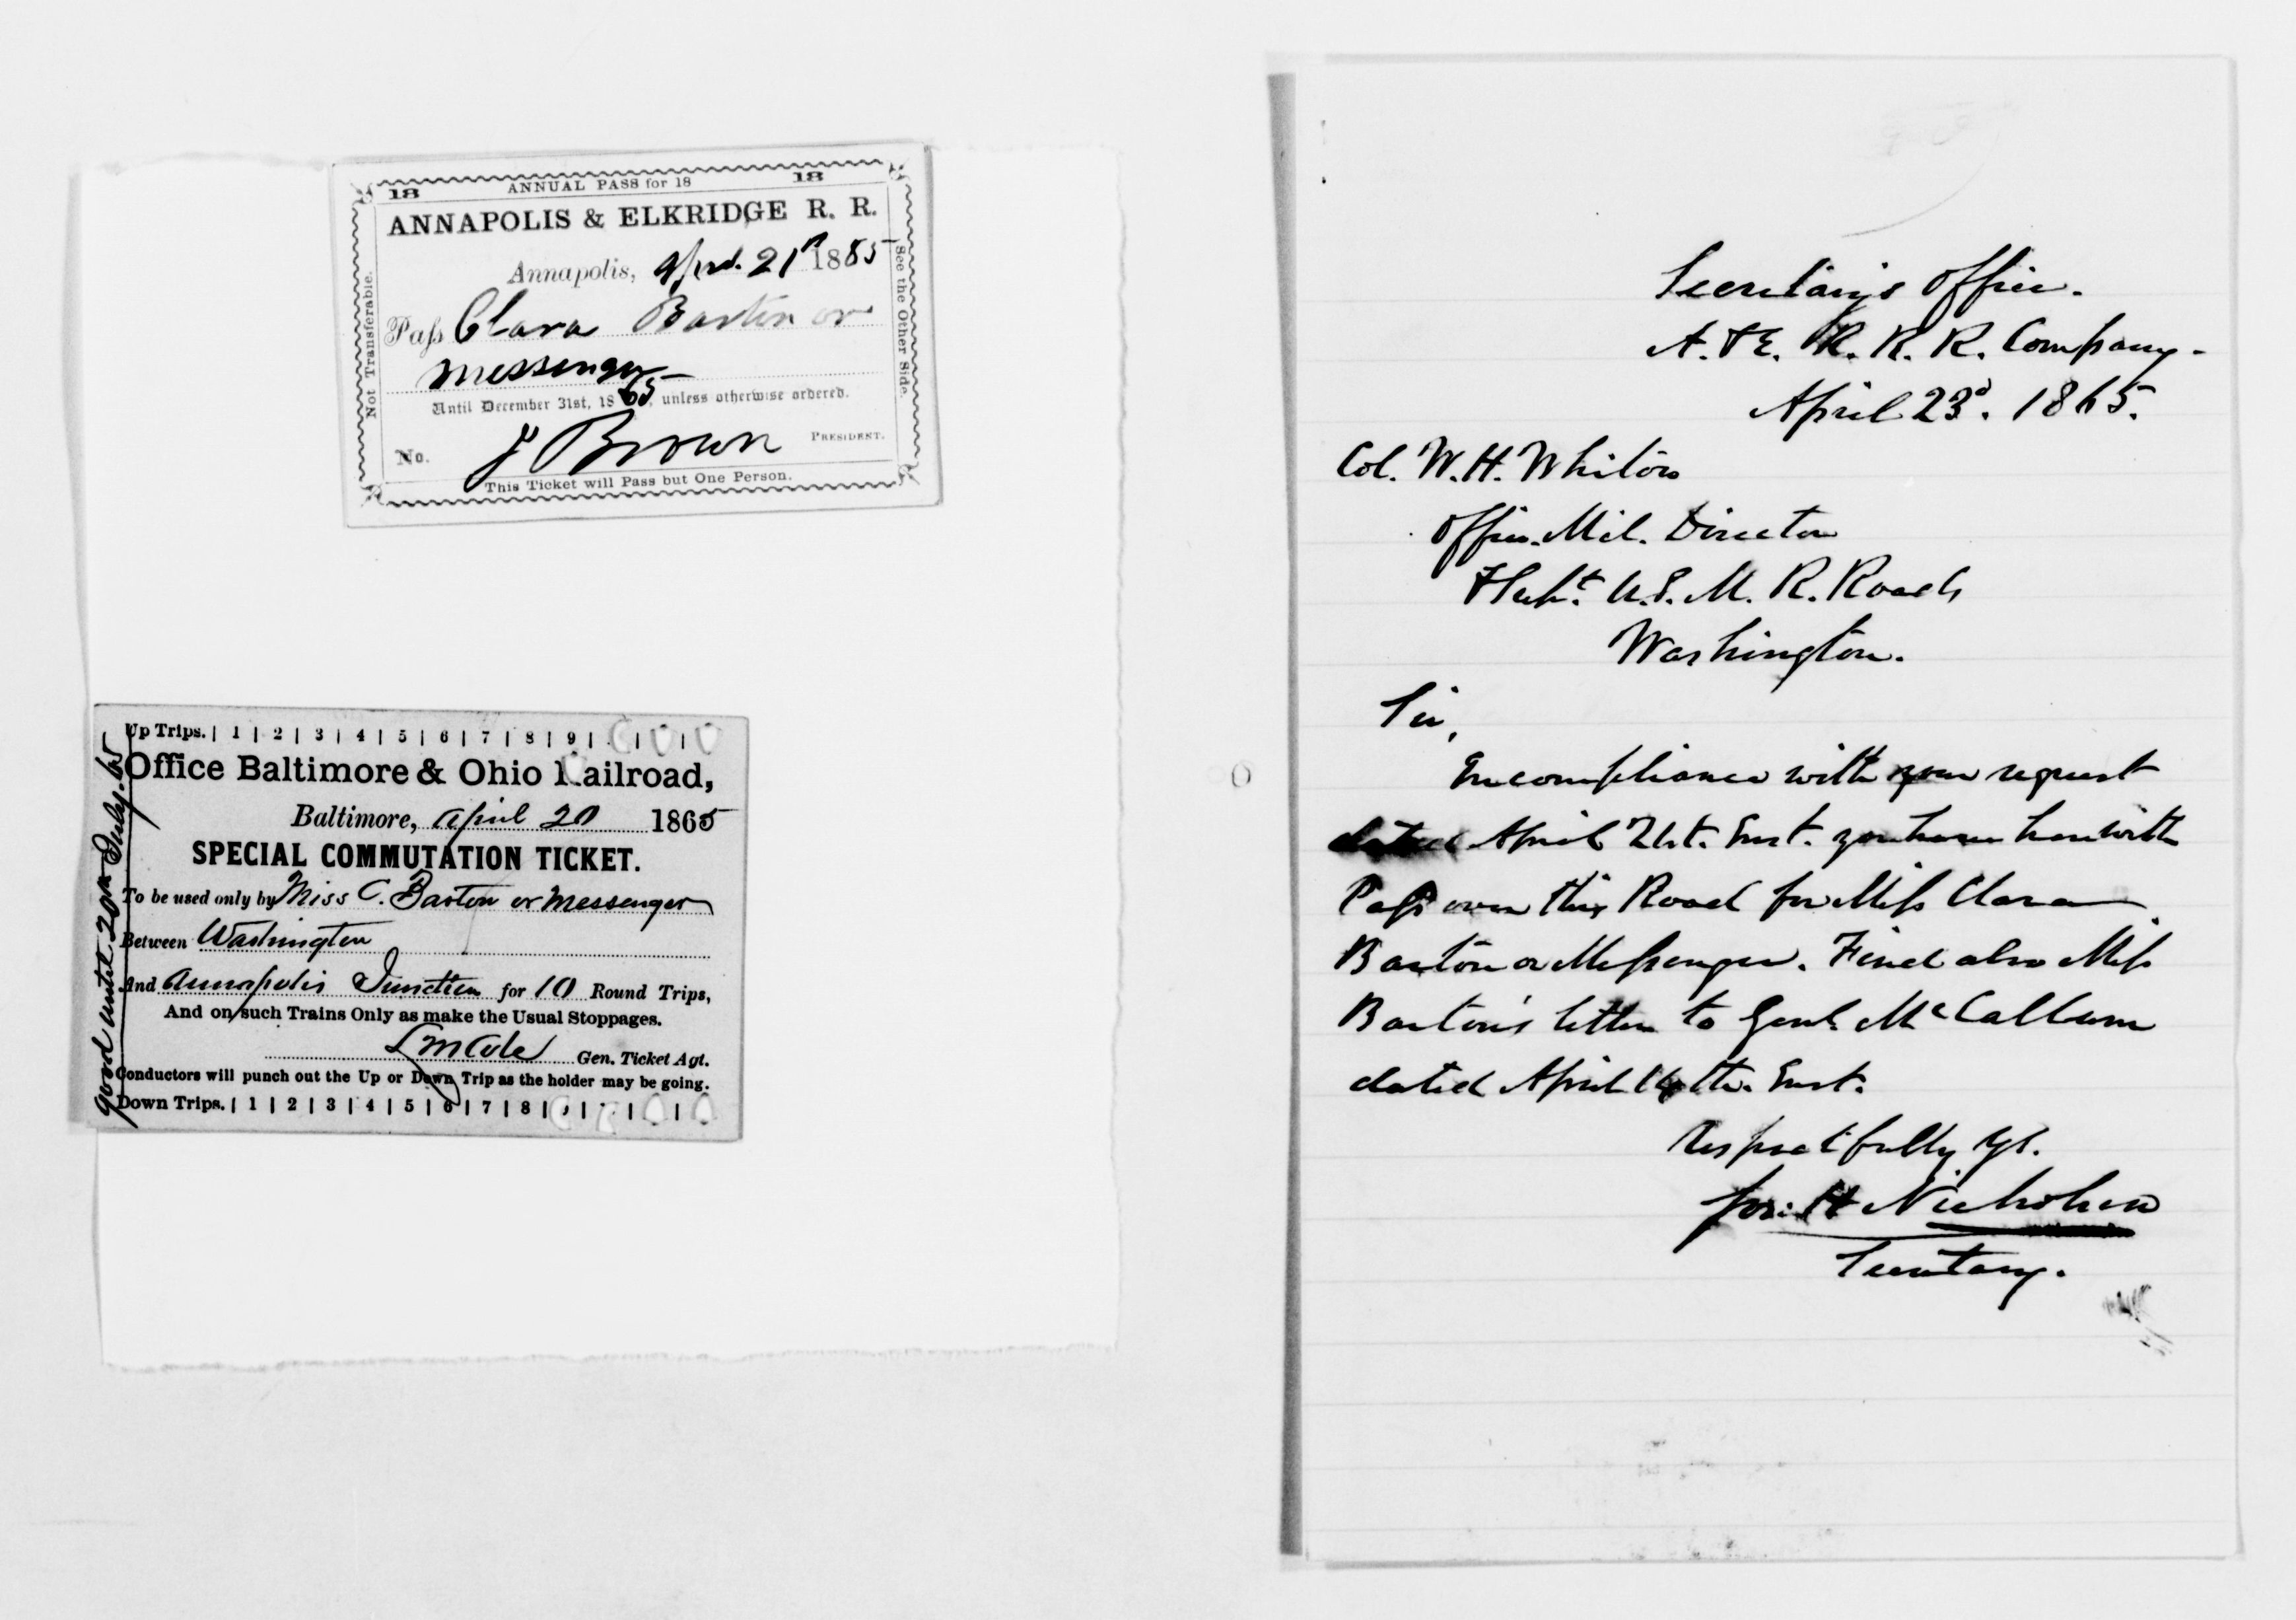 18 ANNUAL PASS for 18 18
ANNAPOLIS & ELKRIDGE R. R.
Annapolis, April 21st 1865
Pass Clara Barton or
messenger
Until December 31st, 1865, unless otherwise ordered.
No. J Brown PRESIDENT.
This Ticket will Pass but One Person.
Not Transferable.
See the Other Side.
Up Trips. | 1 | 2 | 3 | 4 | 5 | 6 | 7 | 8 | 9 |
Office Baltimore & Ohio Railroad,
Baltimore, April 20 1865
SPECIAL COMMUTATION TICKET.
To be used only by Miss C. Barton or messenger
Between Washington
And Annapolis Junction for 10 Round Trips,
And on such Trains Only as make the Usual Stoppages.
L M Cole Gen. Ticket Agt.
Conductors will punch out the Up or Down Trip as the holder may be going.
Down Trips. | 1 | 2 | 3 | 4 | 5 | 6 | 7 | 8 |
good until 20th July. 65
Secretary's Office.
A. & E. R. R. R. Company.
April 23d. 1865.
Col. W. H. Whiton
Office. Mil. Director
& Supt. U. S. M. R. Roads
Washington.
Sir,
In compliance with your request
dated April 21st. Inst. you have herewith
Pass over this Road for Miss Clara
Barton or Messenger. Find also Miss
Barton's letter to Genl. McCallum
dated April 14th. Inst.
Respectfully Yrs.
Jos: H Nicholson
Secretary.